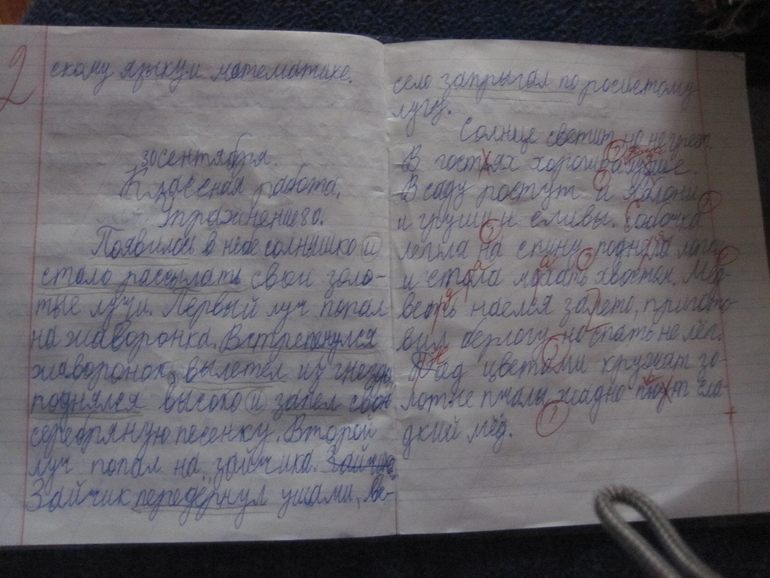 2
скому языку и математике.
30 сентября.
Классная работа.
Упражнение 20.
Появилось в небе солнышко и
стало рассылать свои золо-
тые лучи. Первый луч попал
на жаворонка. Встрепенулся
жаворонок, вылетел из гнезда
поднялся высоко и запел свою
серебряную песенку. Второй
луч попал на зайчика. Зайчик
Зайчик передёрнул ушами, ве-
село запрыгал по росистому
лугу.
Солнце светит, но не греет.
В гостях хорошо а
В саду ростут и яблони
и груши и сливы. Собачка
легла на спину подняла
и стала махать хвостом. Мед-
веть наелся за лето, пригото-
вил берлогу но спать не лёг.
Над цветами кружат зо-
лотые пчалы жадно пьют сла-
дкий мёд.